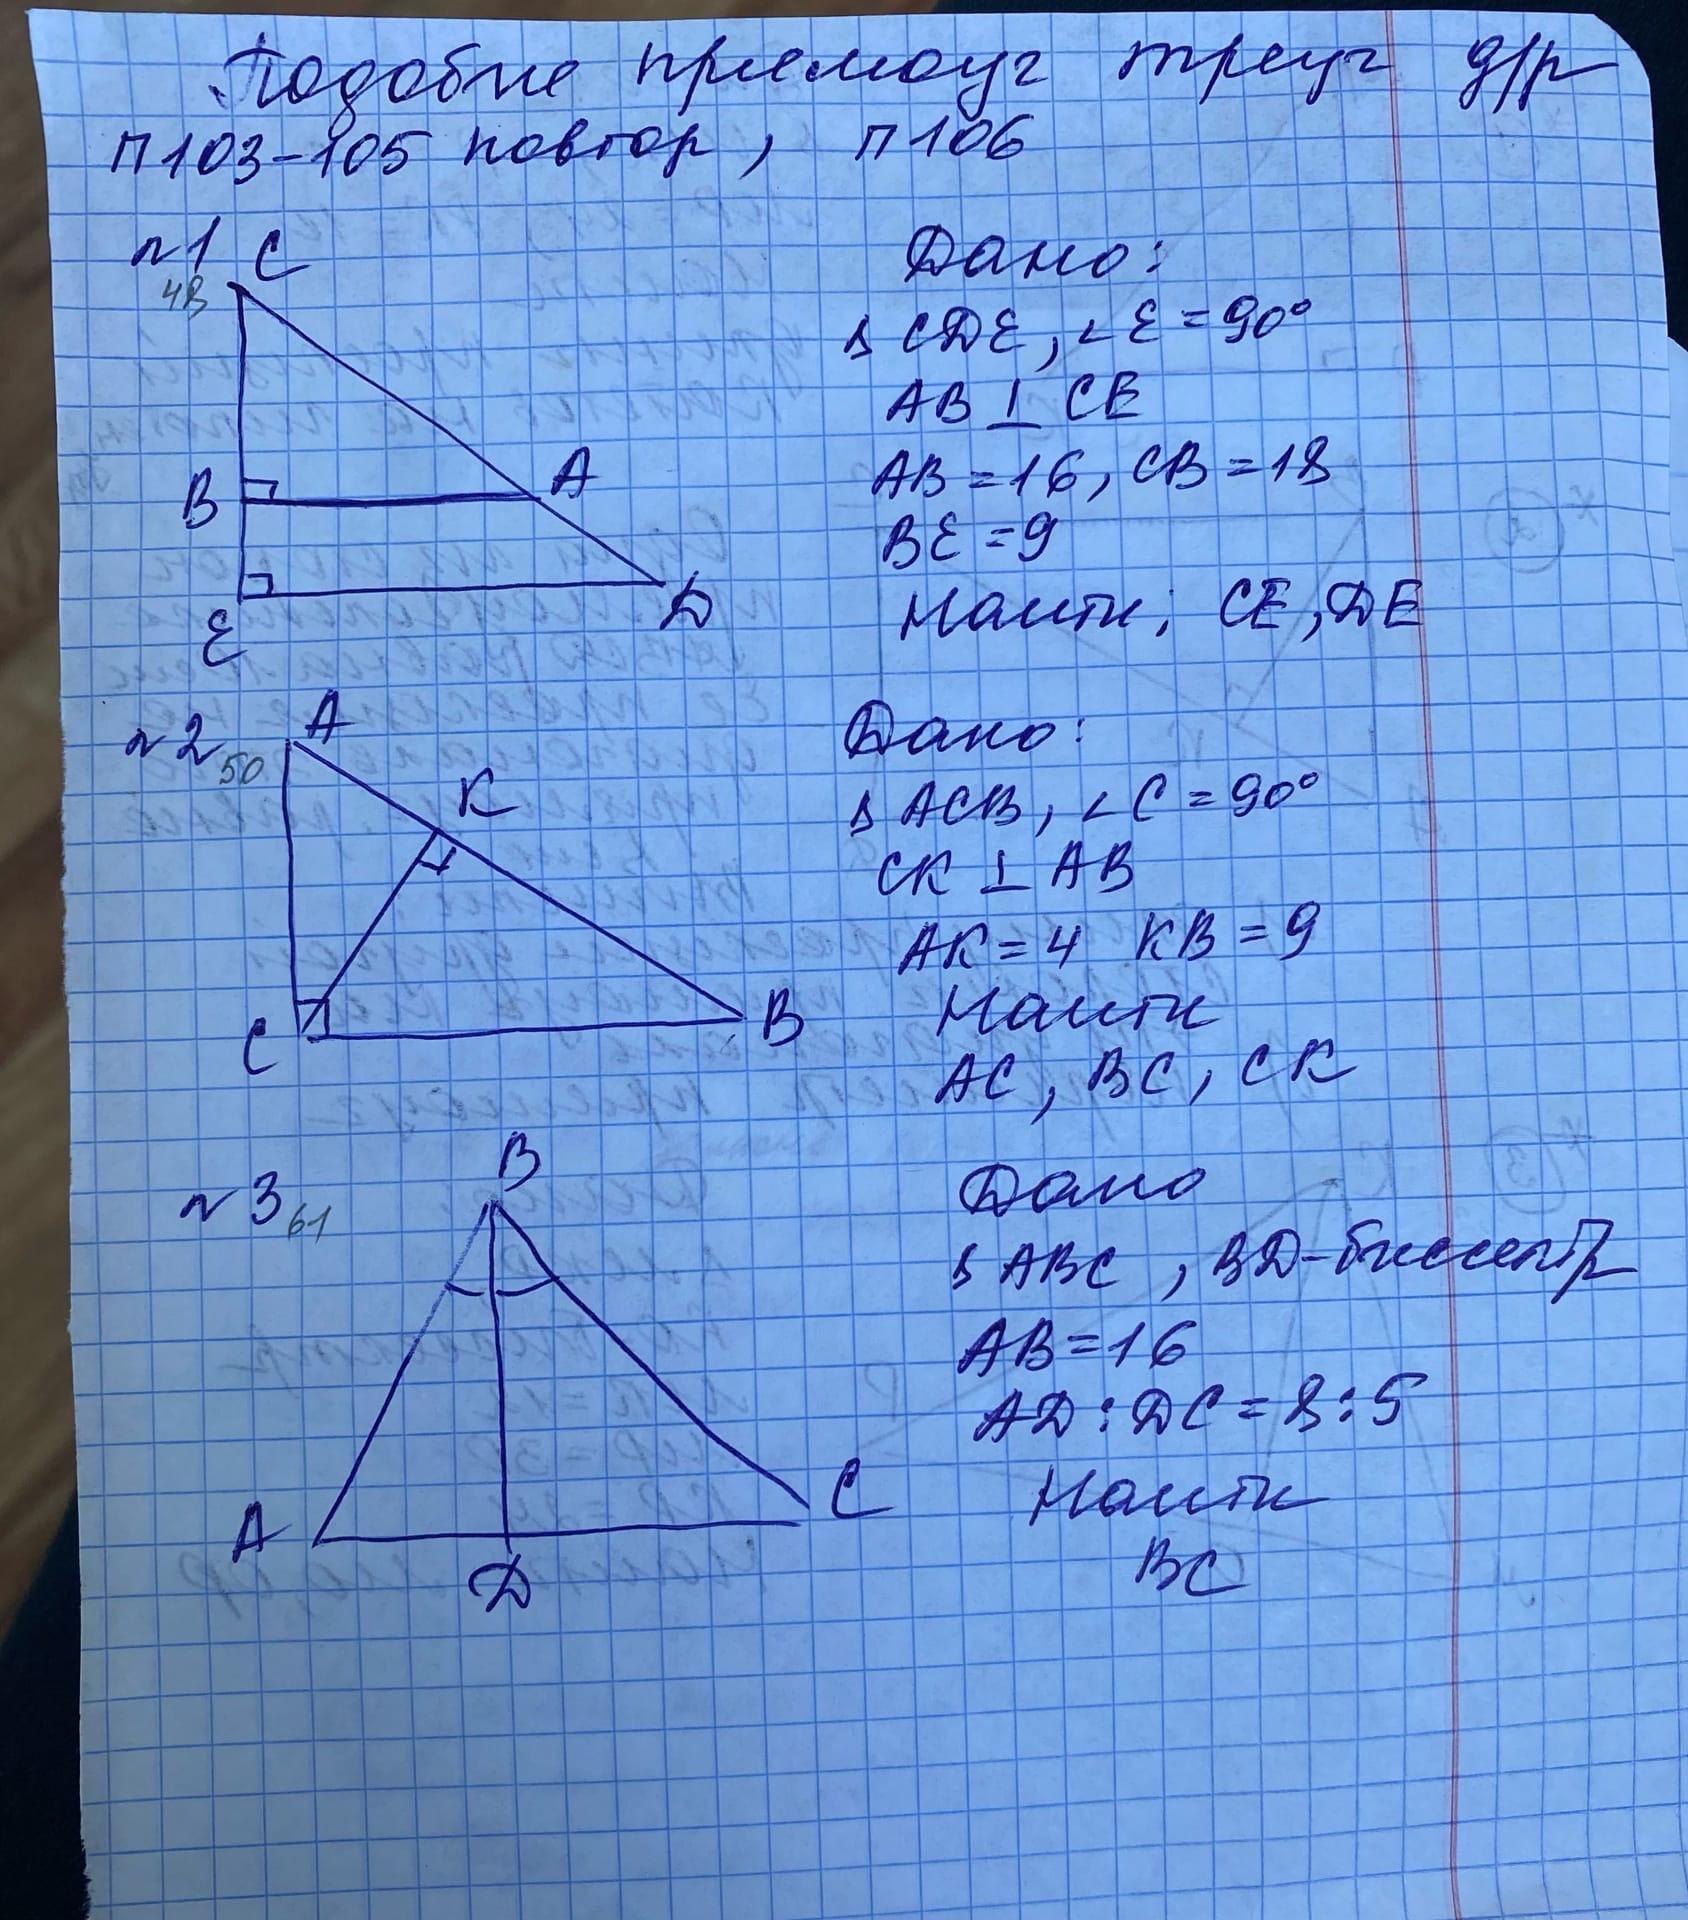 Подобие прямоуг треуг д/р
П103-105 повтор, П106
№1
48
C
B
A
E
D
Дано:
Δ CDE, ∠E = 90°
AB ⊥ CE
AB = 16, CB = 18
BE = 9
Найти: CE, DE
№2
50
A
K
C
B
Дано:
Δ ACB, ∠C = 90°
CK ⊥ AB
AK = 4 KB = 9
Найти
AC, BC, CK
№3
61
B
A
D
C
Дано
Δ ABC, BD-биссектр
AB = 16
AD : DC = 8 : 5
Найти
BC